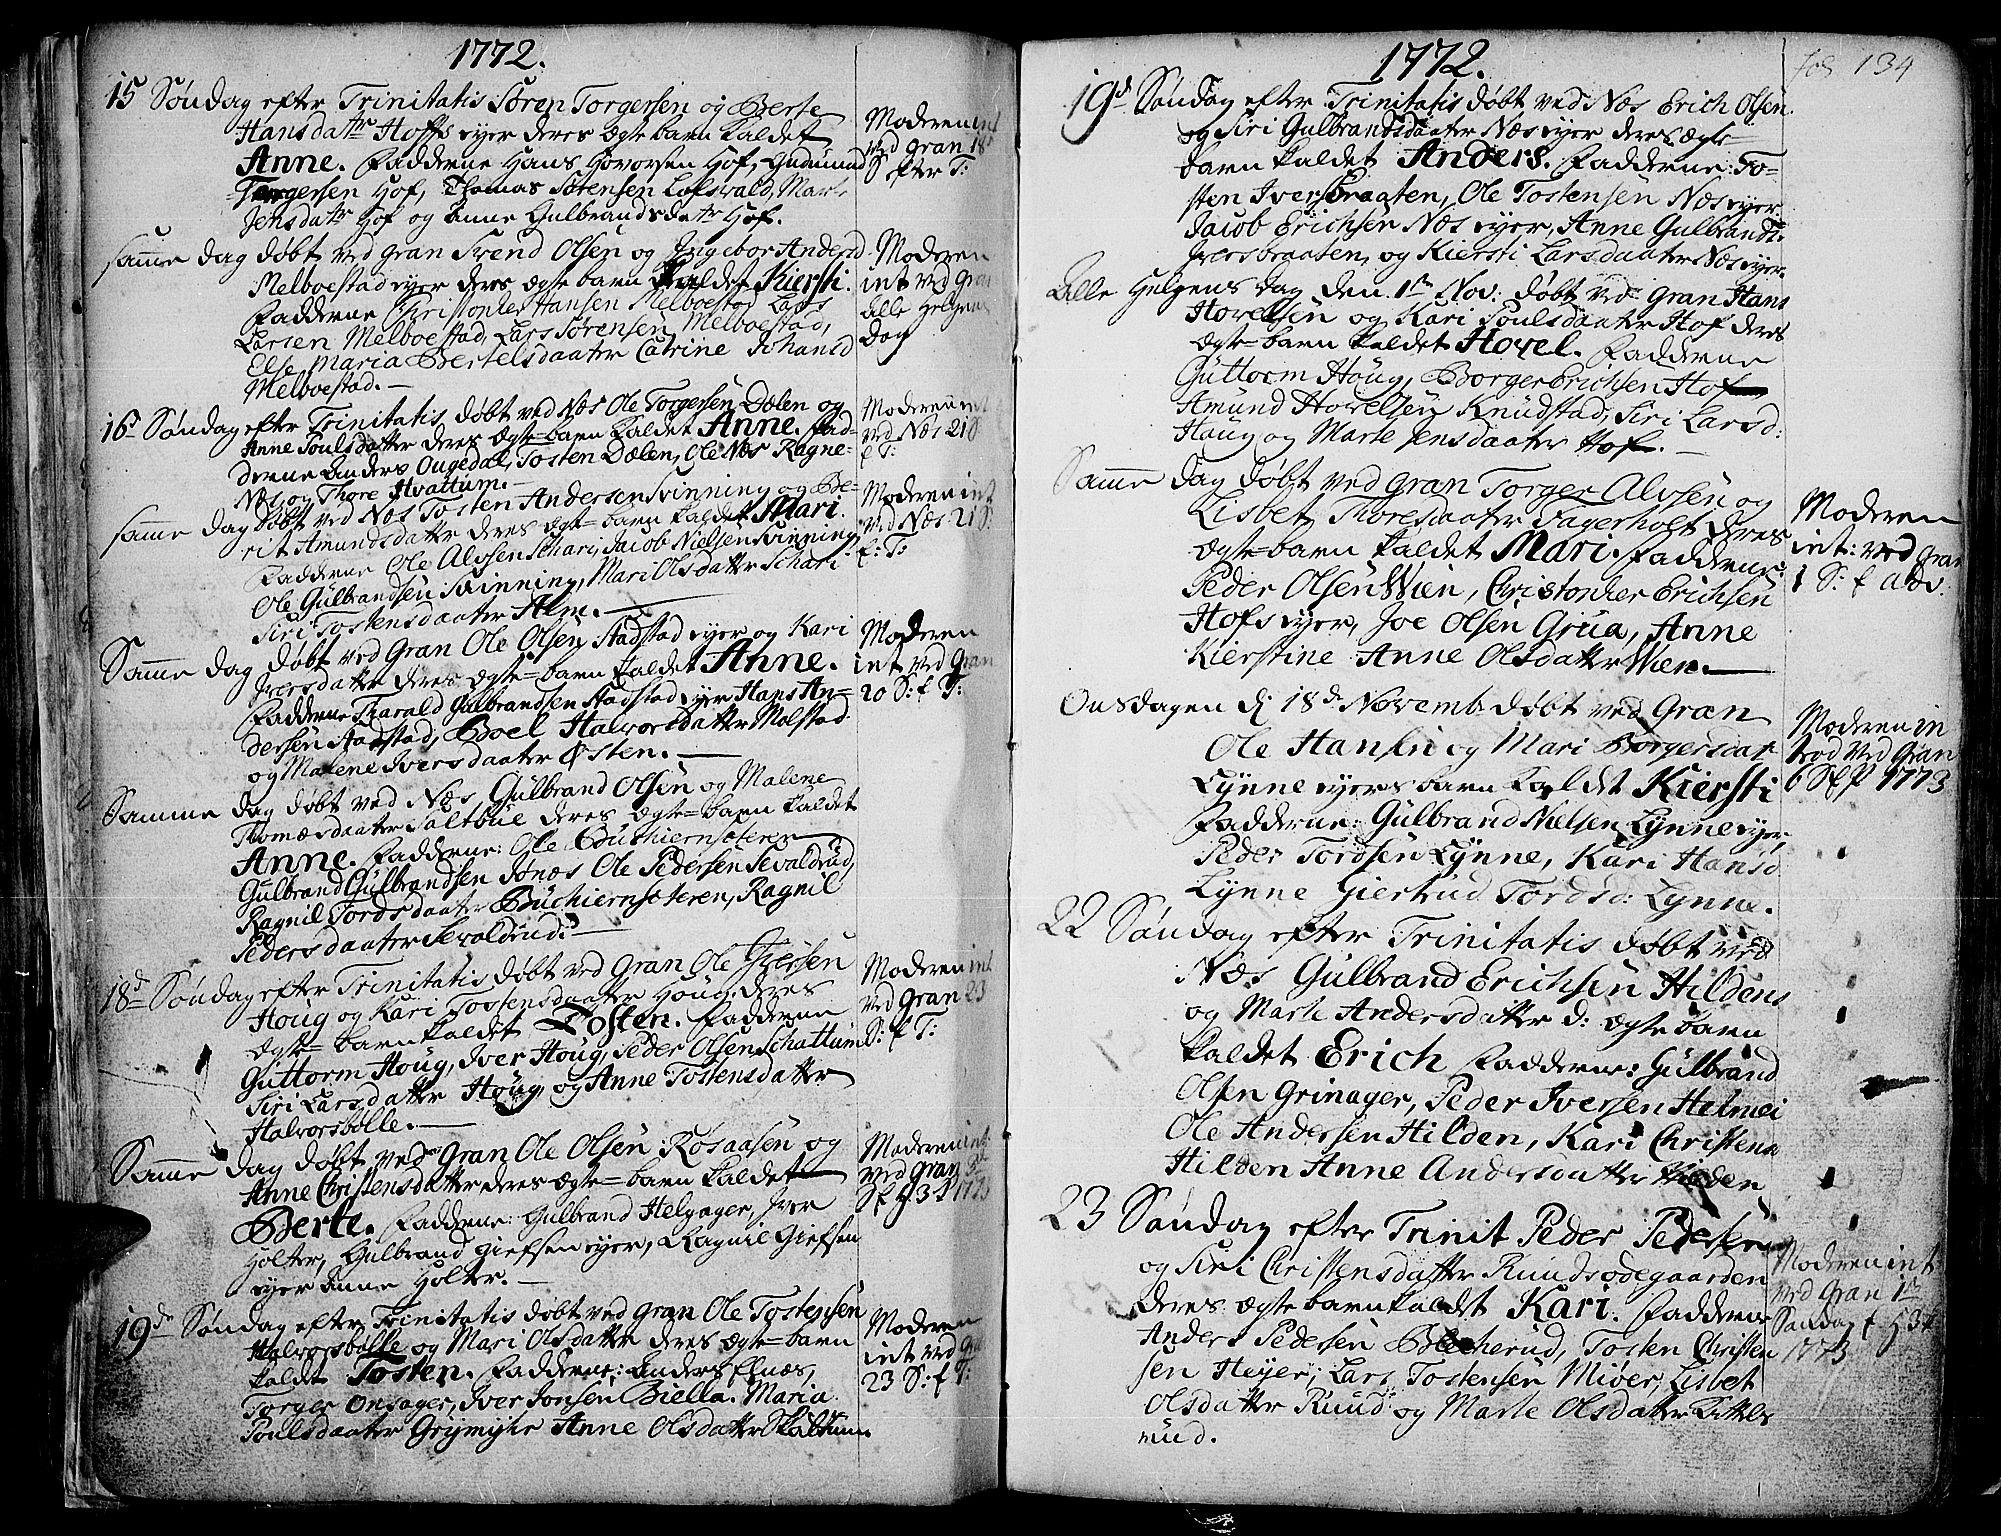 1772.
15 Søndag efter Trinitatis Søren Torgersen og Berte
Hansdattr Hoffs eyer deres ægte barn kaldet
Anne. Fadderne Hans Hovorsen Hof, Gudmund
Torgersen Hof, Thomas Sørensen Lofsvald, Marte
Jensdattr Hof og Anne Gulbrandsdattr Hof.
Moderen int
ved Gran 18
S efter T:
Samme dag døbt ved Gran Svend Olsen og Ingebor Andersd
Melboestad eyer deres ægte barn kaldet Kiersti.
Fadderne Christopher Hansen Melboestad Lars
Larsen Melboestad, Lars Sørensen Melboestad,
Else Maria Bertelsdaater Catrine Johansd
Melboestad.
Moderen
int ved Gran
Alle Helgens
Dag
16 Søndag efter Trinitatis døbt ved Næs Ole Torgersen Dælen og
Anne Poulsdatter deres ægte=barn kaldet Anne. Fad=
derne Anders Ougedal, Tosten Dælen, Ole Næs Ragne=
Næs og Thore Hvattum.
Moderen int
ved Næs 21 S
e T:
Samme dag døbt ved Næs Tosten Andersen Svinning og Be=
rit Amundsdatter deres ægte=barn kaldet Mari.
Fadderne Ole Alvsen Schari, Jacob Nielsen Svinning
Ole Gulbrandsen Svinning, Mari Olsdatter Schari
Siri Tostensdaater Alm.
Moderen int
ved Næs 21 S:
f: T:
Samme dag døbt ved Gran Ole Olsen Stadstad eyer og Kari
Iversdatter deres ægte=barn kaldet Anne.
Fadderne Tharald Gulbrandsen Stadstad eyer Hans An=
dersen Aadstad, Boel Halvorsdatter Molstad
og Malene Iversdaater Østen.
Moderen
int ved Gran
20 S: f T:
Samme dag døbt ved Næs Gulbrand Olsen og Malene
Thomæsdaater Saltbue deres ægte=barn kaldet
Anne. Fadderne: Ole Buchiernsøteren
Gulbrand Gulbrandsen Jønæs Ole Pedersen Sevaldrud,
Ragnil Tordsdaater Buchiernsøteren, Ragnil
Pedersdaater Sevaldrud.
18d Søndag efter Trinitatis døbt ved Gran Ole Iversen
Houg og Kari Tostensdaater Houg deres
ægte=barn kaldet Tosten. Fadderne
Guttorm Houg, Iver Houg, Peder Olsen Schattum
Siri Larsdatter Houg, og Anne Tostensdatter
Halvorsbølle.
Moderen int
ved Gran 23
S: f T:
Samme dag døbt ved Gran Ole Olsen Rosaasen og
Anne Christensdatter deres ægte=barn kaldet
Berte. Fadderne: Gulbrand Helgager, Iver
Holter, Gulbrand Giefsen eyer, Ragnil Giefsen
eyer Anne Holter.
Moderen int
ved Gran
1773
19de Søndag efter Trinitatis døbt ved Gran Ole Tostensen
Halvorsbølle og Mari Olsdatter deres ægte=barn
kaldet Tosten. Fadderne: Anders Elnæs,
Torger Onsager, Iver Jonsen Bilella. Maria
Poulsdaater Grymyhr Anne Olsdatter Skattum.
Moderen
int ved Gra
23 S: f T:
1772.
fol 134
19d Søndag efter Trinitatis døbt ved Næs Erich Olsen
og Siri Gulbrandsdaater Næs eyer deres ægte
barn kaldet Anders. Fadderne: To=
sten Iversbraaten, Ole Tostensen Næs eyer
Jacob Erichsen Næs eyer, Anne Gulbrandsd
Iversbraaten, og Kiersti Larsdaater Næs eyer.
Alle Helgens dag den 1ste Nov: døbt ved Gran Hans
Hovelsen og Kari Poulsdaater Hof deres
ægte=barn kaldet Hovel. Fadderne
Guttorm Houg, Borger Erichsen Hof
Amund Hovelsen Knudstad, Siri Larsd:
Haug og Marte Jensdaater Hof.
Samme dag døbt ved Gran Torger Alvsen og
Lisbet Thoresdaater Fagerholt deres
ægte=barn kaldet Mari. Fadderne:
Peder Olsen Wien, Christopher Erichsen
Hofs eyer, Joe Olsen Grua, Anne
Kierstine Anne Olsdatter Wien.
Moderen
int: ved Gran
1 S: f adv.
Onsdagen d 18de Novemb døbt ved Gran
Ole Hansen og Mari Borgersdat
Lynne eyers barn kaldet Kiersti
Fadderne: Gulbrand Nielsen Lynne eyer,
Peder Tordsen Lynne, Kari Hansd
Lynne Giertrud Tordsd: Lynne.
Moderen in
trod ved Gran
1773
22 Søndag efter Trinitatis døbt ved
Næs Gulbrand Erichsen Hildens
og Marte Andersdatter d: ægte barn
kaldet Erich Fadderne: Gulbrand
Olsen Grinager, Peder Iversen Helmei
Ole Andersen Hilden, Kari Christens
Hilden Anne Andersdatter Hilden
23 Søndag efter Trinit Peder Pedersen
og Siri Christensdatter Ruudsødegaarden
deres ægte barn kaldet Kari. Fadderne
Anders Pedersen Blecherud, Tosten Christen
sen Heyer, Lars Tostensen Miøer, Lisbet
Olsdatter Ruud og Marte Olsdatter Kittels
rud.
Moderen int
ved Gran 1ste
Søndag f
1773